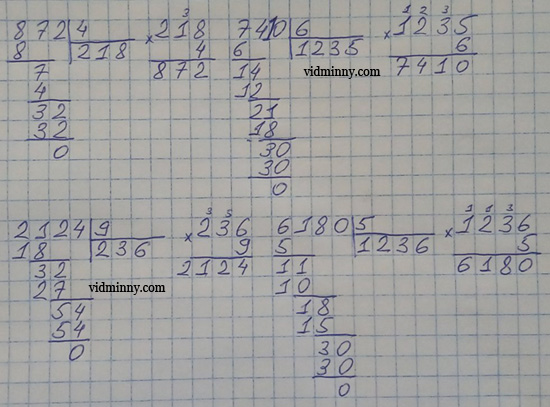 872 | 4
8 | 218
7
4
32
32
0
3
× 218
4
872
7410 | 6
6 | 1235
14
12
21
18
30
30
0
1 2 3
× 1235
6
7410
vidminny.com
2124 | 9
18 | 236
32
27
54
54
0
3 5
× 236
9
2124
vidminny.com
6180 | 5
5 | 1236
11
10
18
15
30
30
0
1 1 3
× 1236
5
6180